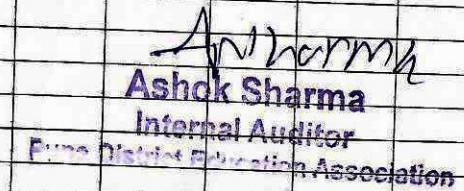 Ashok Sharma
Internal Auditor
Pune District Education Association